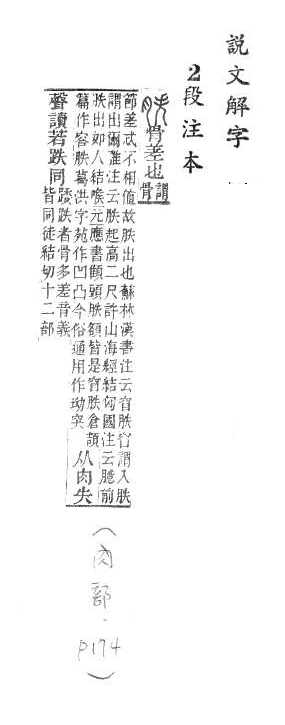 說文解字
2段注本
骨差也謂骨
節差忒不相值故胅出也蘇林漢書注云窅胅窅謂入胅
謂出爾雅注云胅起高二尺許山海經結匈國注云臆前
胅出如人結喉元應書頭胅額皆是窅胅倉頡
篇作容胅葛洪字苑作凹凸今俗通用作坳突
从肉失
聲讀若跌同
踒跌者骨多差音義
皆同徒結切十二部
(肉部·P174)